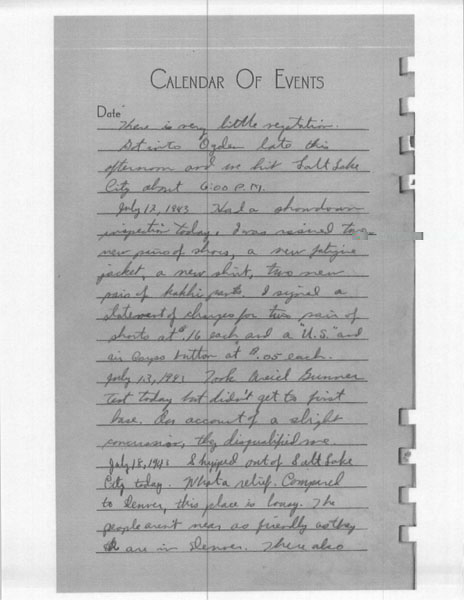 CALENDAR OF EVENTS
Date
There is very little vegetation.
Got into Ogden late this
afternoon and we hit Salt Lake
City about 6:00 P.M.
July 12, 1943 Had a showdown
inspection today. I was issued two
new pairs of shoes, a new fatigue
jacket, a new shirt, two new
pair of kakhi pants. I signed a
statement of charges for two pair of
shorts at $.16 each and a "U.S." and
air corps button at $.05 each.
July 13, 1943 Took Aerial Gunner
test today but didn't get to first
base. On account of a slight
concussion, they disqualified me.
July 18, 1943 Shipped out of Salt Lake
City today. What a relief. Compared
to Denver, this place is lousy. The
people arent near as friendly as they
are in Denver. There also